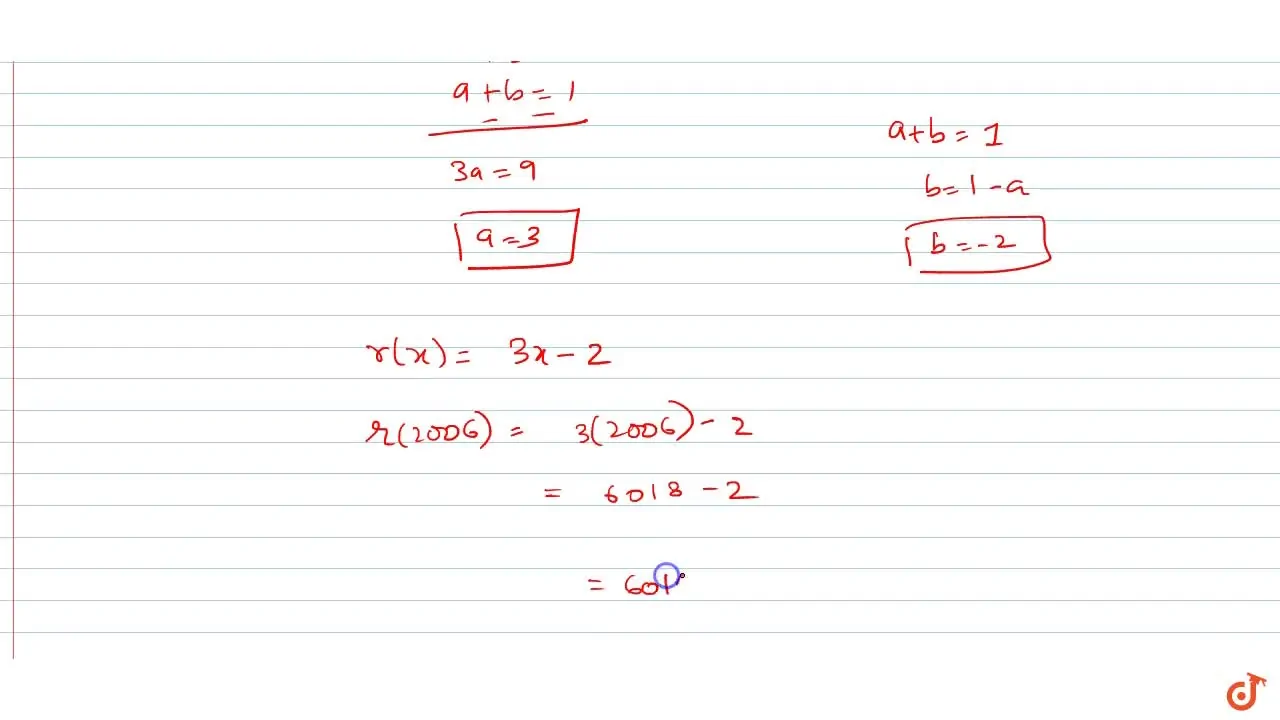 a + b = 1
3a = 9
a = 3
a + b = 1
b = 1 - a
b = -2
r(x) = 3x - 2
r(2006) = 3(2006) - 2
= 6018 - 2
= 601